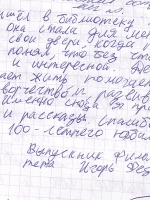 ишёл в библиотеку
она стала для мен
свои двери, когда
понял что без чте
и интересной
ает жить помогает
ворчество и
Именно снова
и рассказы
100-летнего юбил
Выпускник Фили
Игорь